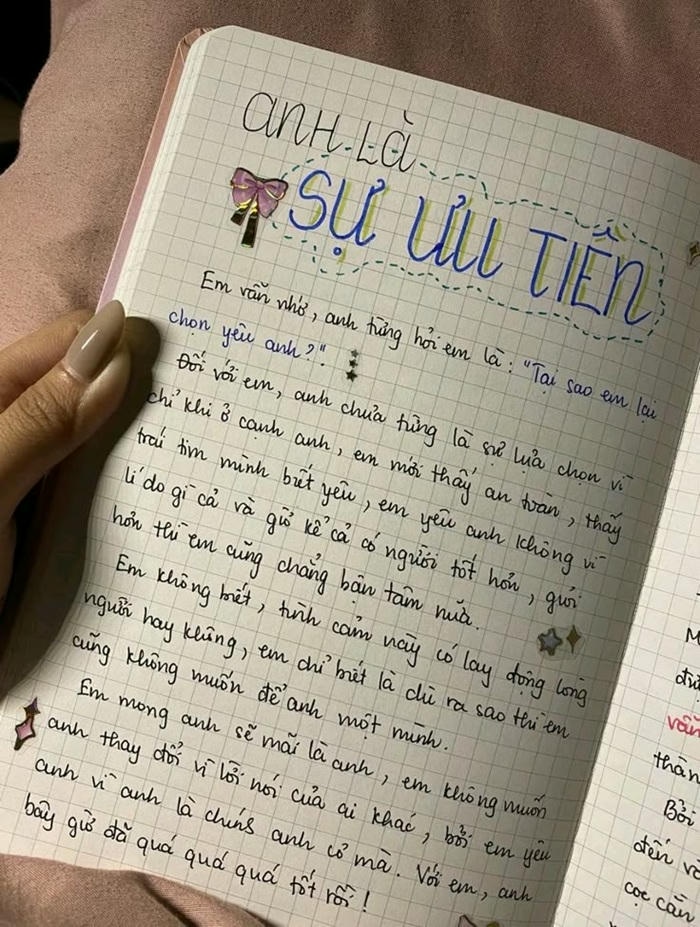 anH Là
SỰ ƯU TIÊN
Em vẫn nhớ, anh từng hỏi em là : "Tại sao em lại
chọn yêu anh?".
Đối với em, anh chưa từng là sự lựa chọn vì
chỉ khi ở cạnh anh, em mới thấy an toàn, thấy
trái tim mình biết yêu, em yêu anh không vì
lí do gì cả và giờ kể cả có người tốt hơn, giỏi
hơn thì em cũng chẳng bận tâm nữa.
Em không biết, tình cảm này có lay động lòng
người hay không, em chỉ biết là dù ra sao thì em
cũng không muốn để anh một mình.
Em mong anh sẽ mãi là anh, em không muốn
anh thay đổi vì lời nói của ai khác, bởi em yêu
anh vì anh là chính anh cơ mà. Với em, anh
bây giờ đã quá quá quá tốt rồi!
M
đư
vẫn
thàn
Bởi
đến
cọc cằn